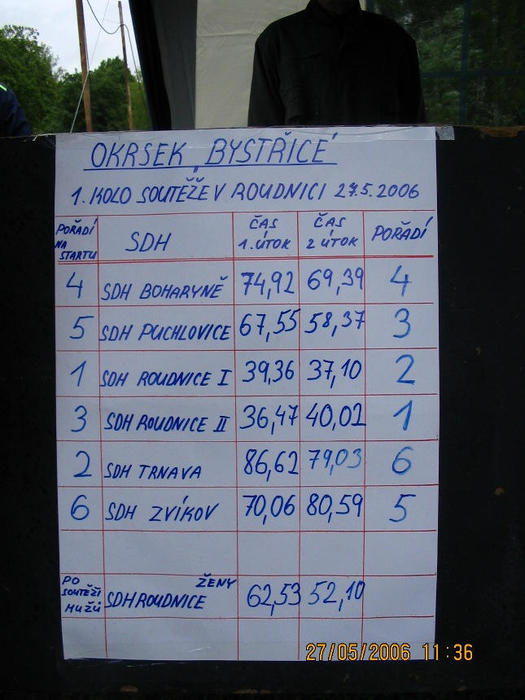 OKRSEK „BYSTŘICE"
1. KOLO SOUTĚŽE V ROUDNICI 27.5.2006
POŘADÍ NA STARTU SDH ČAS 1. ÚTOK ČAS 2 ÚTOK POŘADÍ
4 SDH BOHARYNĚ 74,92 69,39 4
5 SDH PUCHLOVICE 67,55 58,37 3
1 SDH ROUDNICE I 39,36 37,10 2
3 SDH ROUDNICE II 36,47 40,02 1
2 SDH TRNAVA 86,62 79,03 6
6 SDH ZVÍKOV 70,06 80,59 5
PO SOUTĚŽI MUŽŮ SDH ROUDNICE ŽENY 62,53 52,10
27/05/2006 11:36